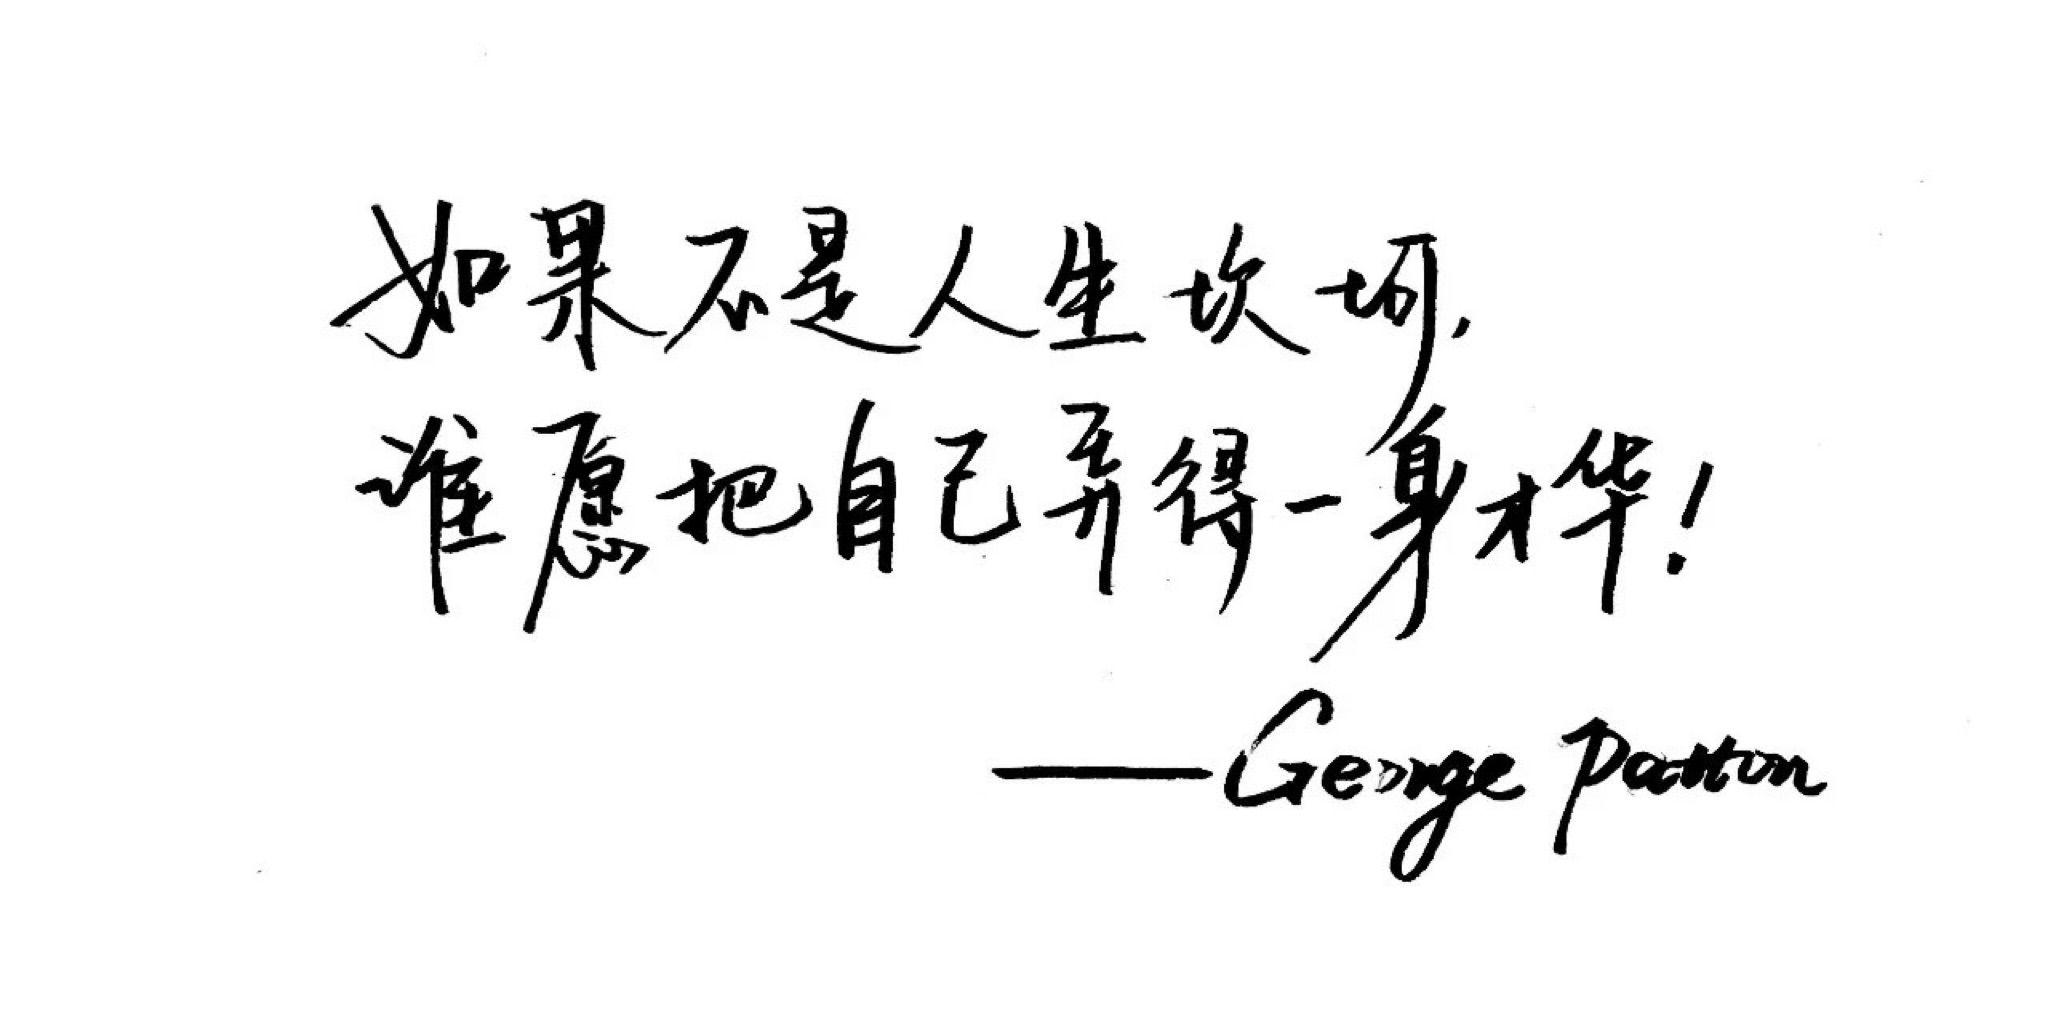 如果不是人生坎坷,
谁愿把自己弄得一身才华!
——George Patton